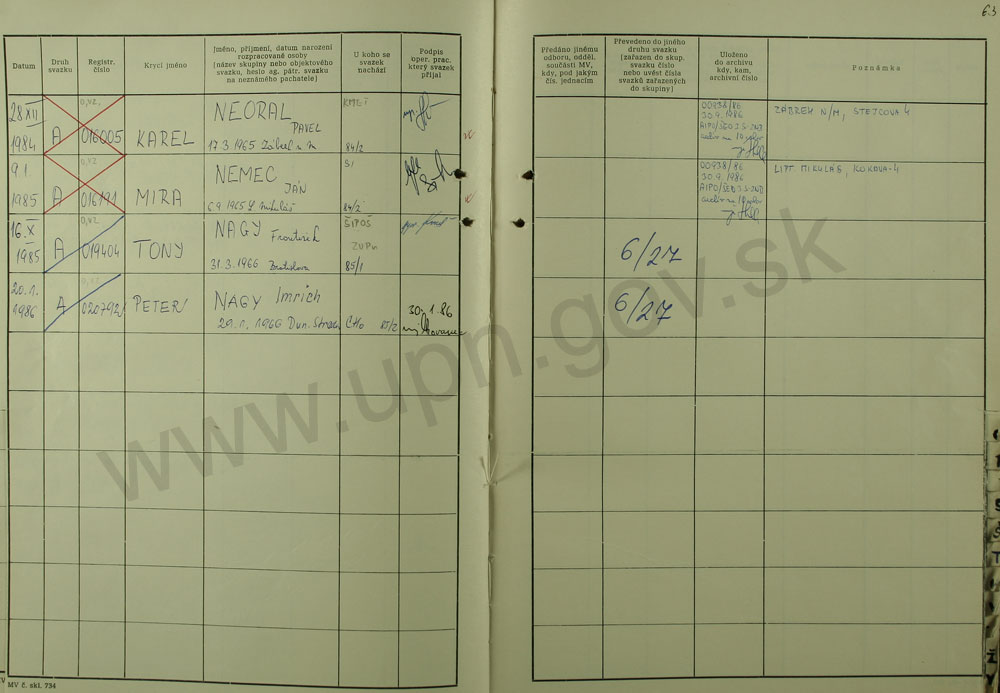 63
Datum
Druh
svazku
Registr.
číslo
Krycí jméno
Jméno, příjmení, datum narození
rozpracované osoby
(název skupiny nebo objektového
svazku, heslo ag. pátr. svazku
na neznámého pachatele)
U koho se
svazek
nachází
Podpis
oper. prac.
který svazek
přijal
Předáno jinému
odboru, odděl.
součásti MV,
kdy, pod jakým
čís. jednacím
Převedeno do jiného
druhu svazku
(zařazen do skup.
svazku číslo
nebo uvést čísla
svazků zařazených
do skupiny)
Uloženo
do archivu
kdy, kam,
archivní číslo
Poznámka
28 XII
1984
A
016005
KAREL
NEORAL
PAVEL
17 3.1965 Zábřeh n M
KMEŤ
84/2
00938/86
30.9.1986
ZÁBŘEH N/M, 4
9 1
1985
A
016191
MIRA
NEMEC
JÁN
6.9.1965 L. Mikuláš
SI
84/2
00938/86
30.9.1986
LIPT. MIKULÁŠ, KOKAVA-4
16.X
1985
A
019404
TONY
NAGY František
31.3.1966 Bratislava
ŠIPOŠ
85/1
6/27
20.1.
1986
A
020792
PETER
NAGY Imrich
29.1.1966 Dun. Streda
85/2
30.1.86
6/27
www.upn.gov.sk
MV č. skl. 734